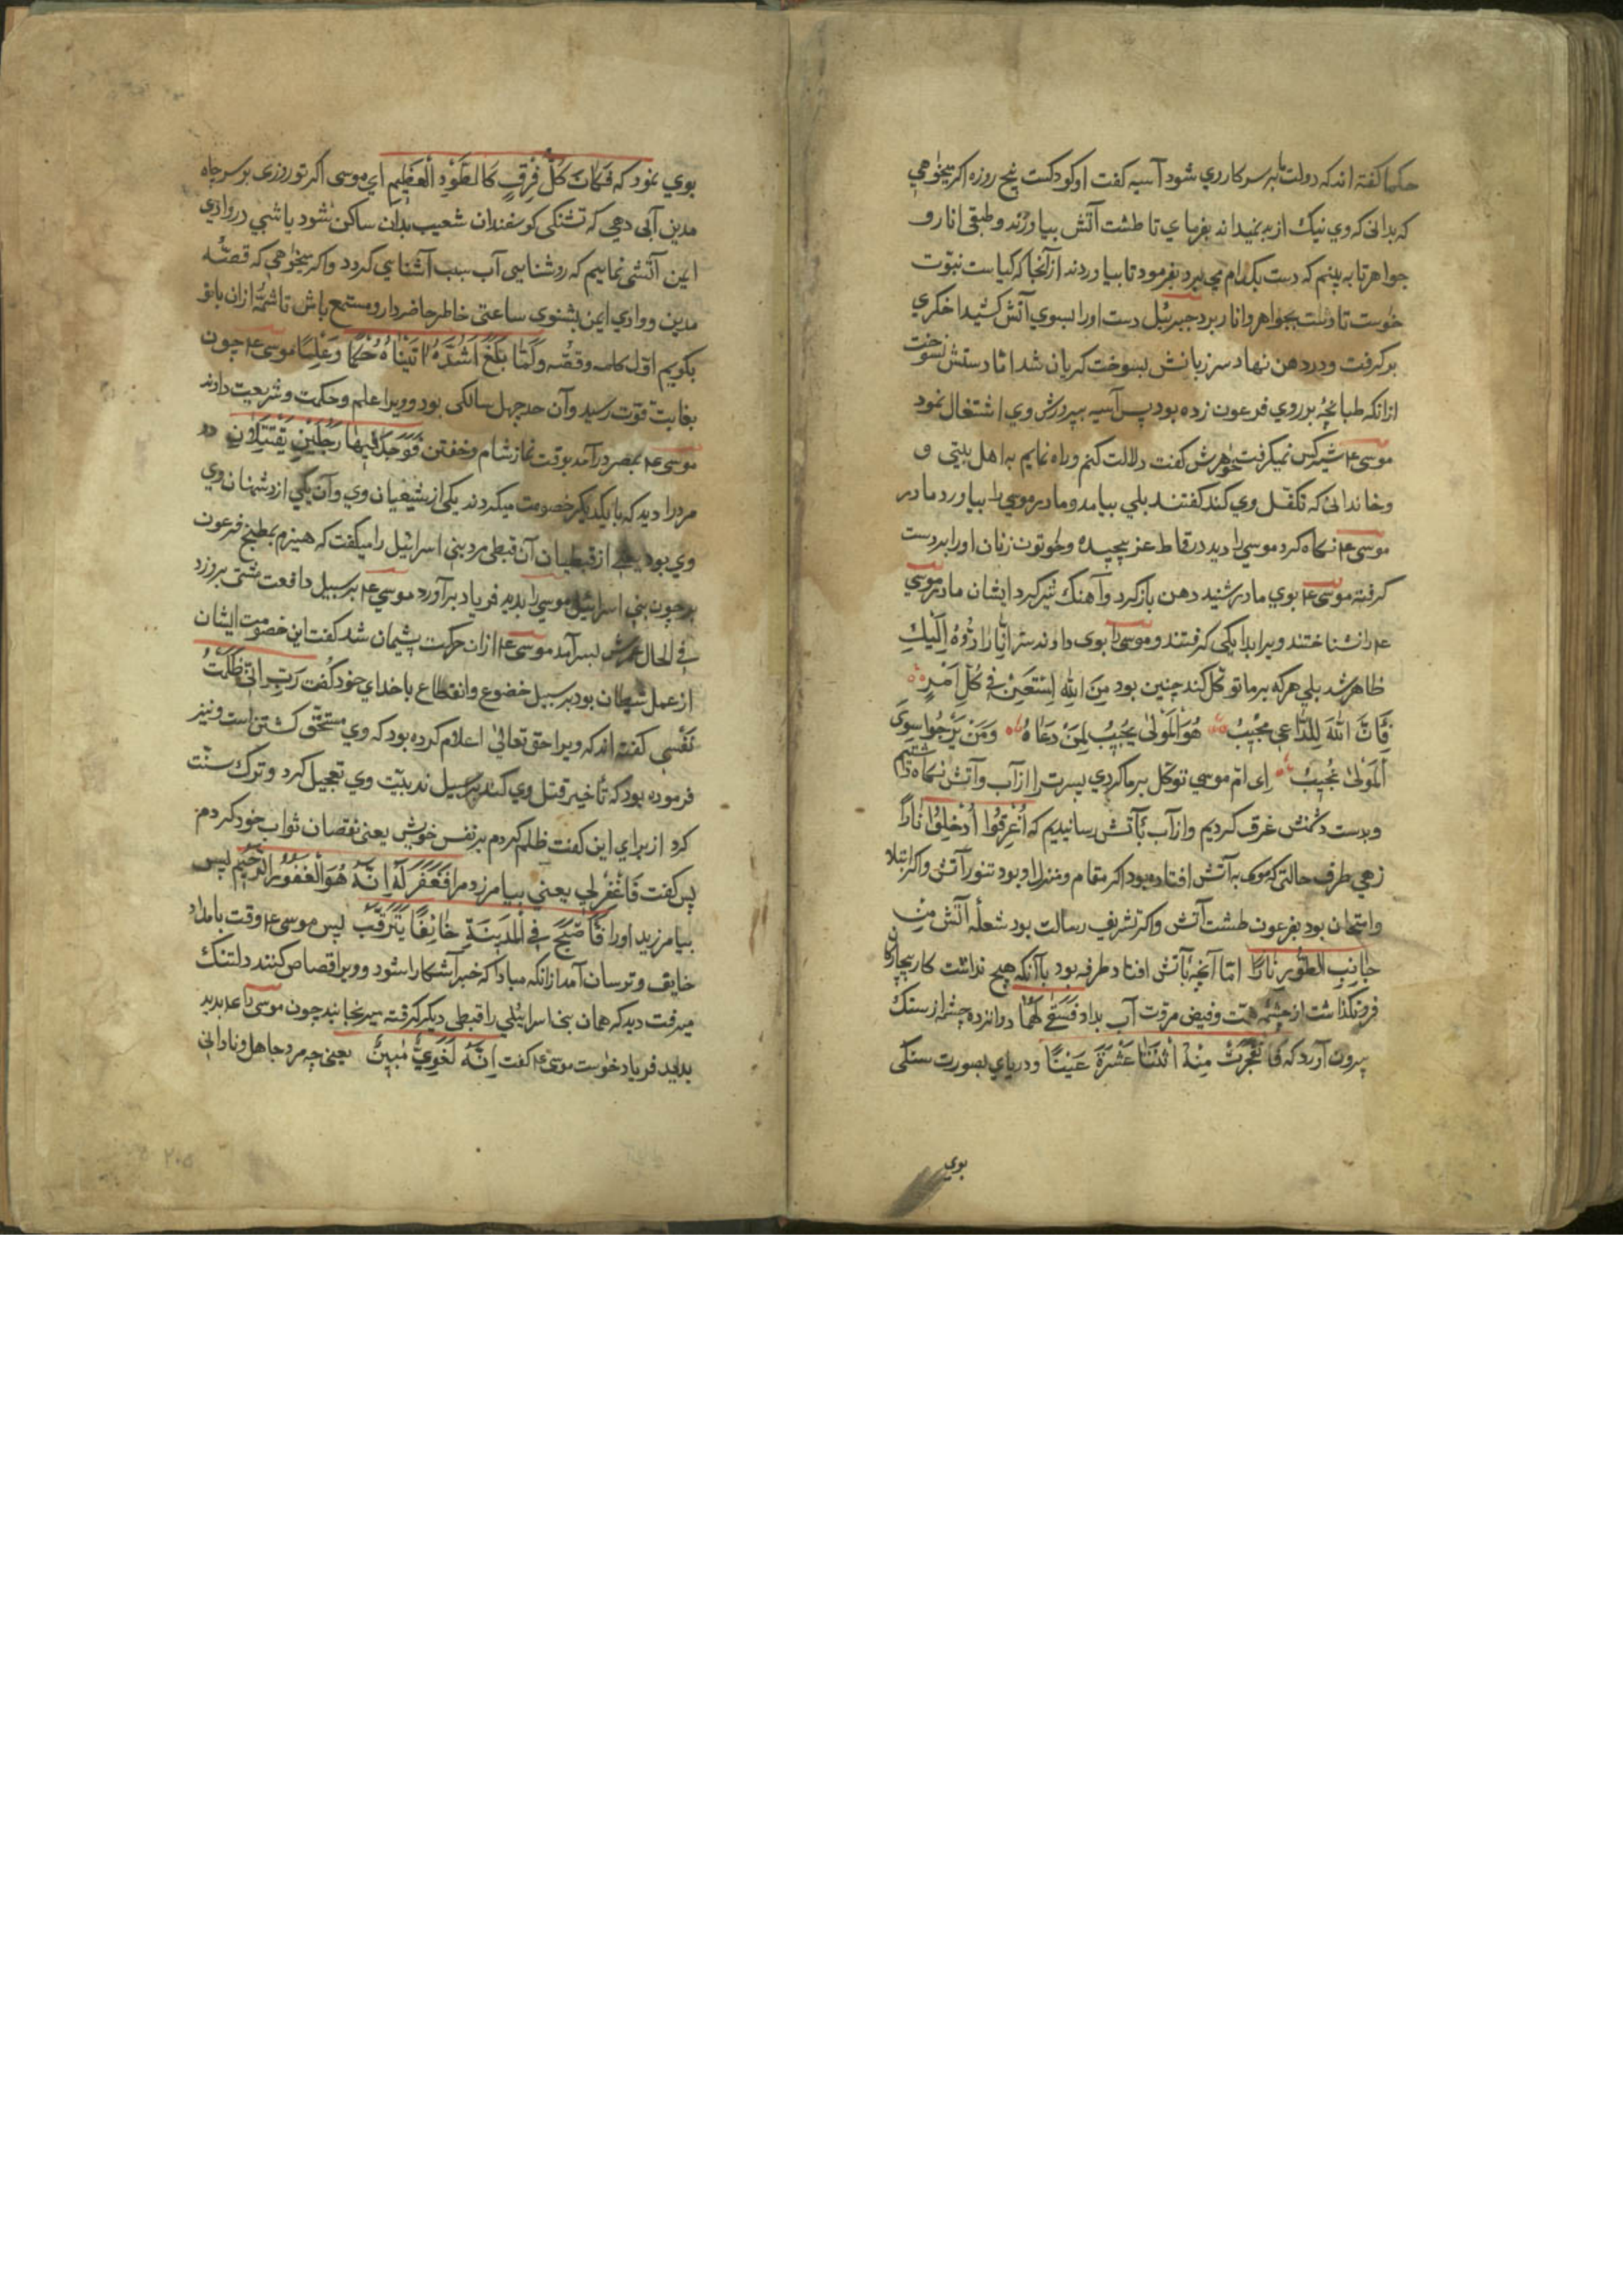 حكما كفته اند كه دولت ما بر سر كار وي شود آسيه كفت او كودكست پنج روزه اكر ميخواهي
كه بداني كه وي نيك از بد نميداند بفرماي تا طشت آتش بياورند و طبقي انار و
جواهر تا به بينم كه دست بكدام مي برد بفرمود تا بياوردند از آنجا كه كياست نبوّت
خوست تا دست بجواهر و انار برد جبرئيل دست او را بسوي آتش كشيد اخكري
بر كرفت و در دهن نهاد سر زبانش بسوخت كريان شد اما دستش نسوخت
از انكه طبانچهٔ بر روي فرعون زده بود پس آسيه بپرورش وي اشتغال نمود
موسى ع م شير كس نميكرفت خوهرش كفت دلالت كنم و راه نمايم به اهل بيتي و
و خانداني كه تكفّل وي كند كفتند بلي بيامد و مادر موسي را بياورد مادر
موسى ع م نكاه كرد موسي را ديد در قماط عز پيچيده و خوتون زنان او را بر دست
كرفته موسى ع م بوي مادر شنيد دهن باز كرد و آهنك شير كرد ايشان مادر موسي
ع م را نشناختند و ويرا بدايكي كرفتند و موسى را بوي دادند سر اِنَّا رَادُّوهُ اِلَيْكِ
ظاهر شد بلي هر كه بر ما توكل كند چنين بود مِنَ اللهِ اِسْتَعِنْ فِي كُلِّ اَمْرٍ
فَاِنَّ اللهَ لِلدَّاعِي مُجِيْبُ هُوَ الْمَوْلىٰ يُجِيْبُ لِمَنْ دَعَاهُ وَمَنْ يَرْجُوا سِوَى
الْمَوْلىٰ يُجِيبُ اي امّ موسي توكل بر ما كردي پسرت را از آب و آتش نكاه داشتيم
و بدست دشمنش غرق كرديم و از آب بآتش رسانيديم كه اُغْرِقُوا اُدْخِلُوا نَارًا
زهي طرف حالتي كه موسى به آتش افتاده بود اكر مقام و منزل او بود تنور آتش و اكر ابتلا
و امتحان بود بفرعون طشت آتش و اكر تشريف رسالت بود شعلهٔ آتش مِنْ
جَانِبِ الطُّورِ نَارًا امّا آنچه بآتش افتاد طرفه بود با آنكه هيچ نداشت كار بيچاركان
فرو نكذاشت از چشمهٔ همّت و فيض مروّت آب بداد فَسَقٰى لَهُمَا دوازده چشمه از سنك
بيرون آورد كه فَانْفَجَرَتْ مِنْهُ اثْنَتَا عَشْرَةَ عَيْنًا و درياي بصورت سنكي
بوي
بوي نمود كه فَكَانَ كُلُّ فِرْقٍ كَالطَّوْدِ الْعَظِيمِ اي موسى اكر تو روزي بر سر چاه
مدين آبي دهي كه تشنكي كوسفندان شعيب بدان ساكن شود يا شبي در وادي
ايمن آتشي نماييم كه روشنايي آب سبب آشنايي كردد و اكر ميخواهي كه قصّهٔ
مدين و وادي ايمن بشنوي ساعتي خاطر حاضر دار و مستمع باش تا شمّهٔ از ان با تو
بكويم اوّل كلمه و قصّه وَلَمَّا بَلَغَ اَشُدَّهُ اٰتَيْنَاهُ حُكْمًا وَعِلْمًا موسى ع م چون
بغايت قوّت رسيد و آن حد چهل سالكي بود و ويرا علم و حكمت و شريعت دادند
موسى ع م بمصر در آمد بوقت نماز شام و خفتن فَوَجَدَ فِيهَا رَجُلَيْنِ يَقْتَتِلَانِ دو
مرد را ديد كه با يكديكر خصومت ميكردند يكي از شيعيان وي و آن يكي از دشمنان وي
وي بود يعني از قبطيان آن قبطي مرد بني اسرائيل را ميكفت كه هيزم بمطبخ فرعون
بر چون بني اسرائيل موسي را بديد فرياد برآورد موسى ع م بر سبيل دافعت مشتي بر وزد
في الحال عمرش بسر آمد موسى ع م از ان حركت پشيمان شد كفت اين خصومت ايشان
از عمل شيطان بود بر سبيل خضوع و انقطاع با خداي خود كفت رَبِّ اِنِّي ظَلَمْتُ
نَفْسِي كفته اند كه ويرا حق تعالىٰ اعلام كرده بود كه وي مستحقّ كشتن است و نيز
فرموده بود كه تأخير قتل وي كند بر سبيل ندبيّت وي تعجيل كرد و ترك سنّت
كرد از براي اين كفت ظلم كردم بر نفس خويش يعني نقصان ثواب خود كردم
پس كفت فَاغْفِرْ لِي يعني بيامرزد مرا فَغَفَرَ لَهُ اِنَّهُ هُوَ الْغَفُورُ الرَّحِيمُ پس
بيامرزيد او را فَاَصْبَحَ فِي الْمَدِينَةِ خَائِفًا يَتَرَقَّبُ پس موسى ع م وقت بامداد
خايف و ترسان آمد از انكه مبادا كه خبر آشكارا شود و ويرا قصاص كنند دلتنك
ميرفت ديد كه همان بني اسرائيلي را قبطي ديكر كرفته ميرنجانيد چون موسى را ع م بديد
بديد فرياد خواست موسى ع م كفت اِنَّهُ لَغَوِيٌّ مُبِينٌ يعني چه مرد جاهل و ناداني
٢٠٥